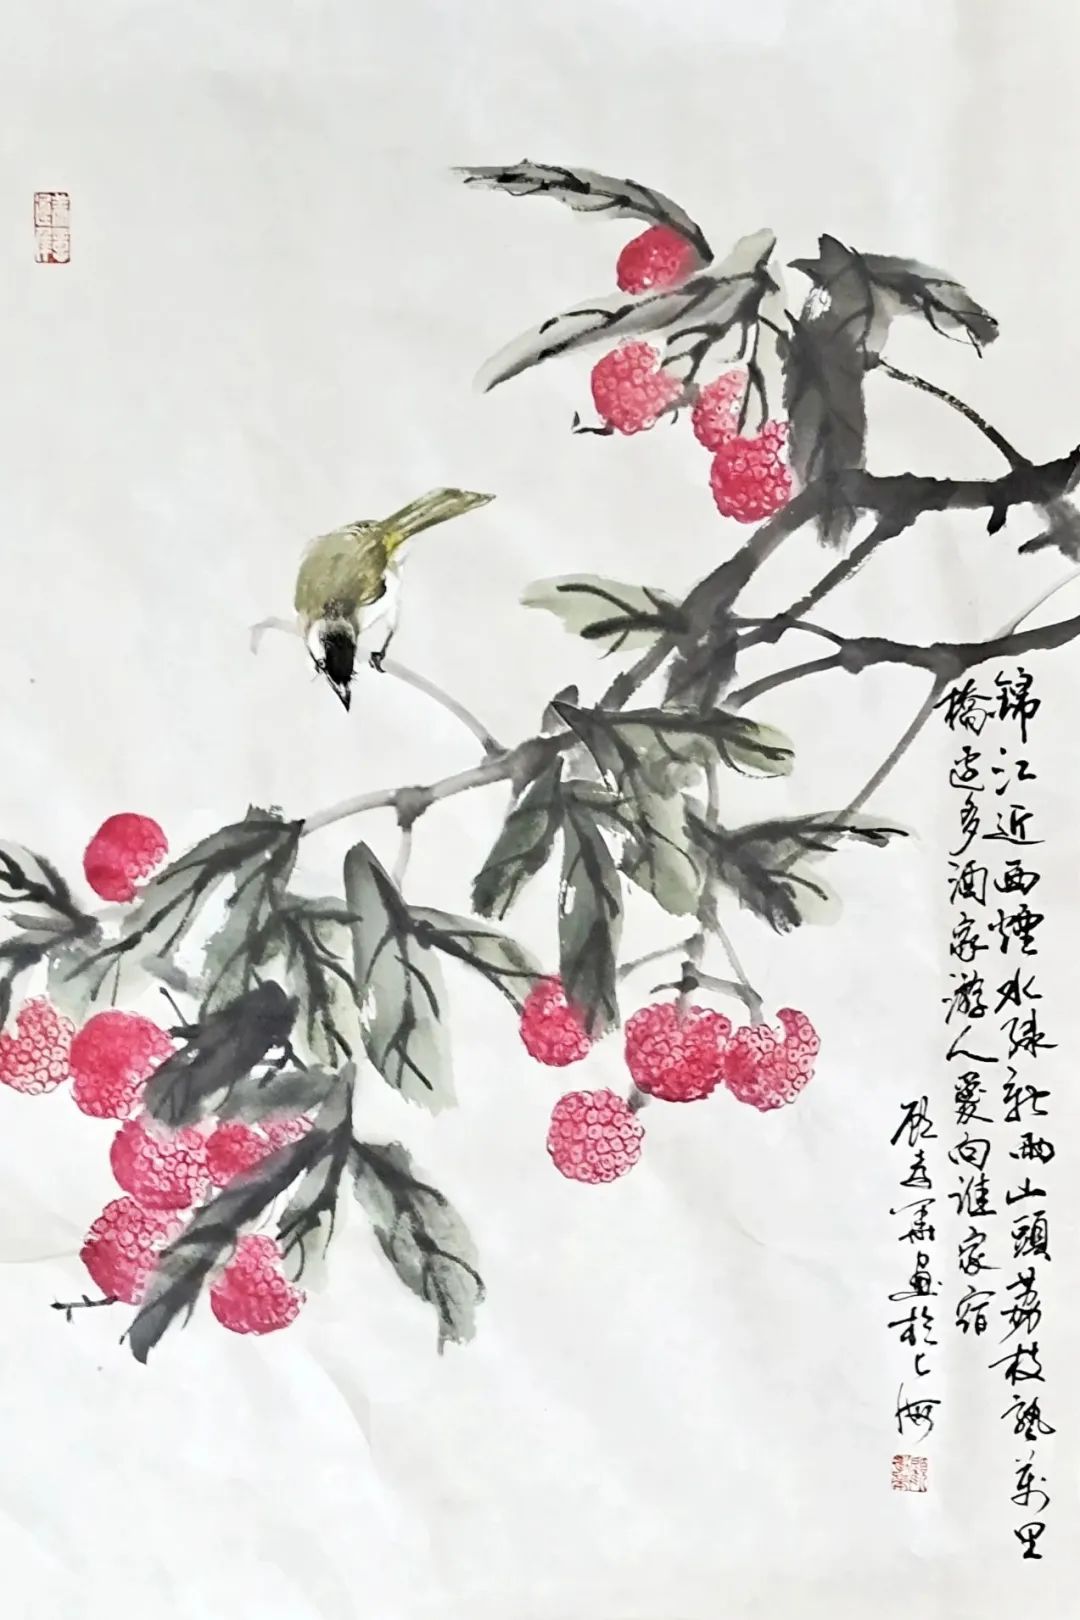 錦江近西煙水绿新雨山頭荔枝熟萬里
橋边多酒家游人愛向誰家宿
画於上海